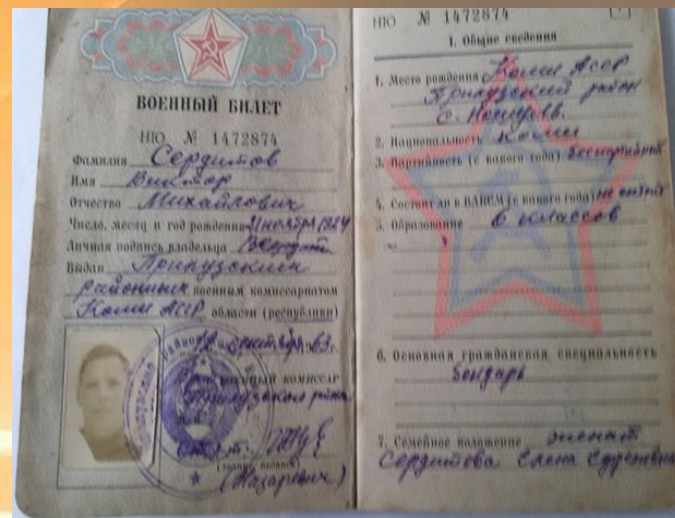 ВОЕННЫЙ БИЛЕТ
НЮ № 1472874
Фамилия Сердитов
Имя Виктор
Отчество Михайлович
Число, месяц и год рождения 21 ноября 1924
Личная подпись владельца
Выдан Прилузским
районным военным комиссариатом
Коми АССР области (республики)
12 сентября 63 г.
военный комиссар
Прилузского р-на
(звание, подпись)
(Назаревич)
НЮ № 1472874
I. Общие сведения
1. Место рождения Коми АССР
Прилузский район
с. Ношуль
2. Национальность Коми
3. Партийность (с какого года) Беспартийный
4. Состоял ли в ВЛКСМ (с какого года) не состоял
5. Образование 6 классов
6. Основная гражданская специальность
Бондарь
7. Семейное положение женат
Сердитова Елена Ефремовна